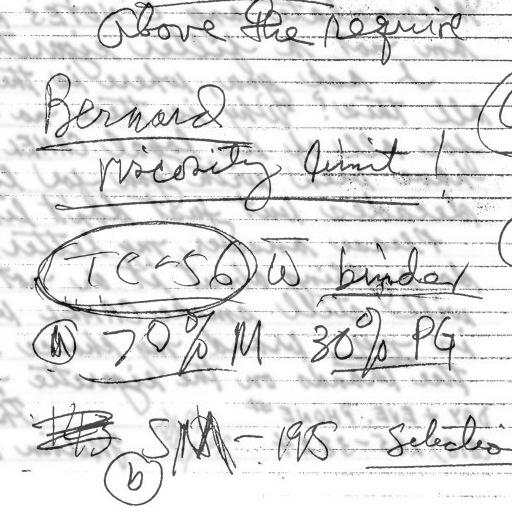 above the require
Bernard
viscosity limit !
TC-56 w̅ binder
70% M 30% PG
- 195 selectio
b